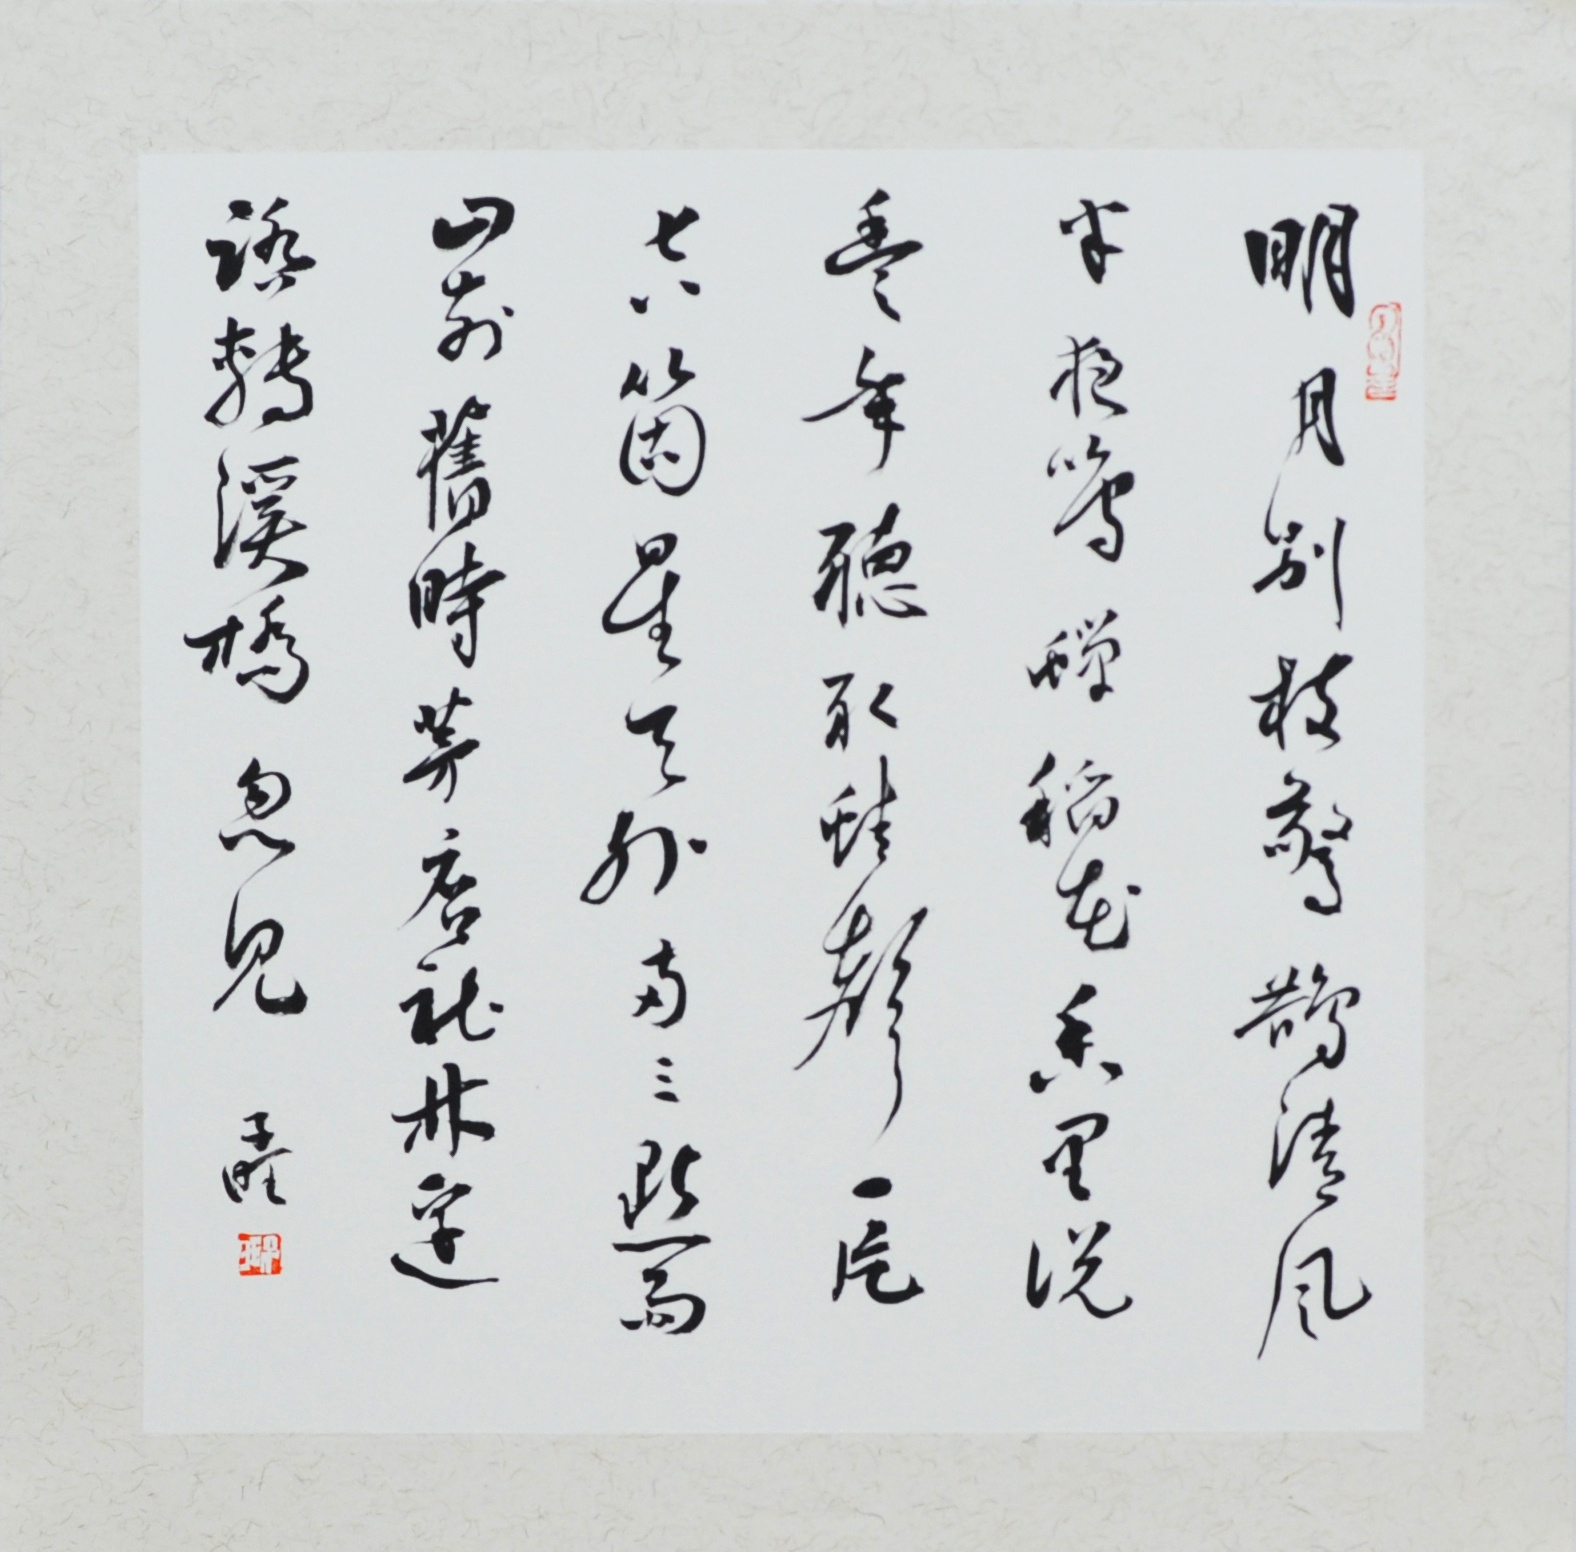 明月别枝驚鵲清風
半夜鳴蟬稻花香里说
豊年聽取蛙聲一片
七八箇星天外兩三點雨
山前舊時茅店社林边
路轉溪橋忽見